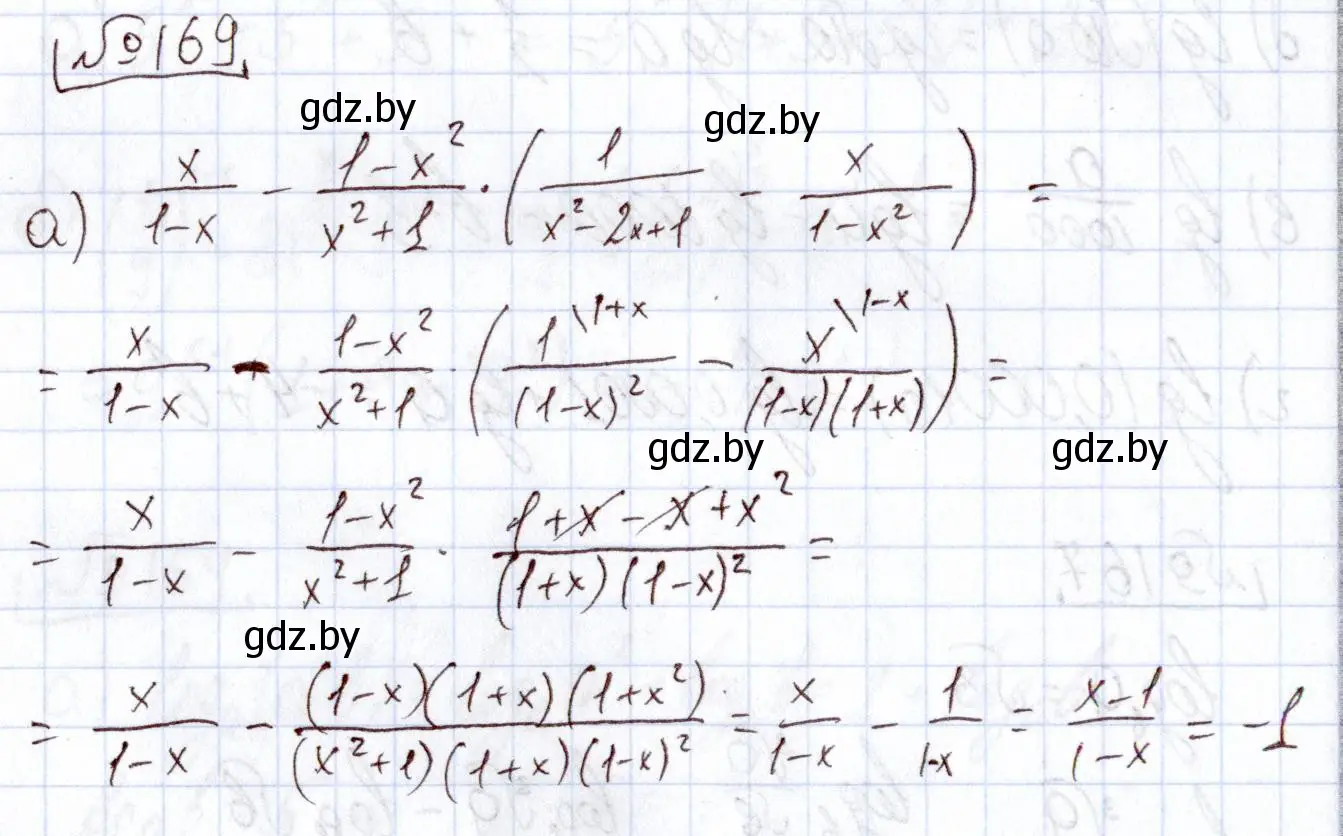 №169
gdz.by
gdz.by
а) x/(1-x) - (1-x²)/(x²+1) · (1/(x²-2x+1) - x/(1-x²)) =
= x/(1-x) - (1-x²)/(x²+1) · (1\1+x/(1-x)² - x\1-x/((1-x)(1+x))) =
gdz.by
gdz.by
= x/(1-x) - (1-x²)/(x²+1) · (1+x-x+x²)/((1+x)(1-x)²) =
gdz.by
= x/(1-x) - ((1-x)(1+x)(1+x²))/((x²+1)(1+x)(1-x)²) = x/(1-x) - 1/(1-x) = (x-1)/(1-x) = -1